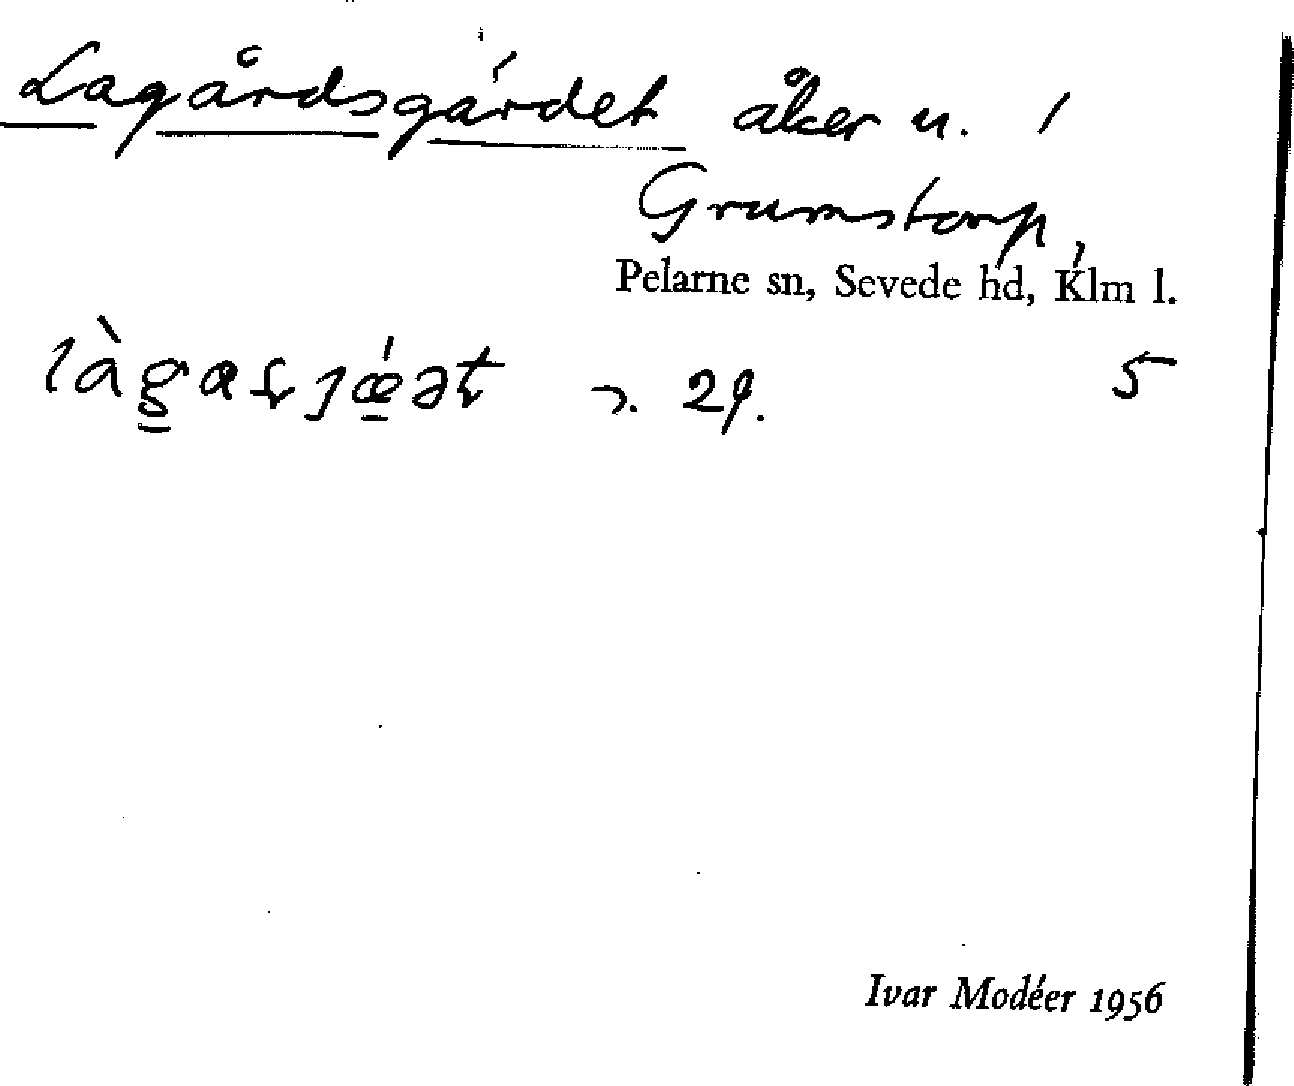 Lagårdsgärdet åker u. 1
Grumstorp,
Pelarne sn, Sevede hd, Klm l.
5
Ivar Modéer 1956